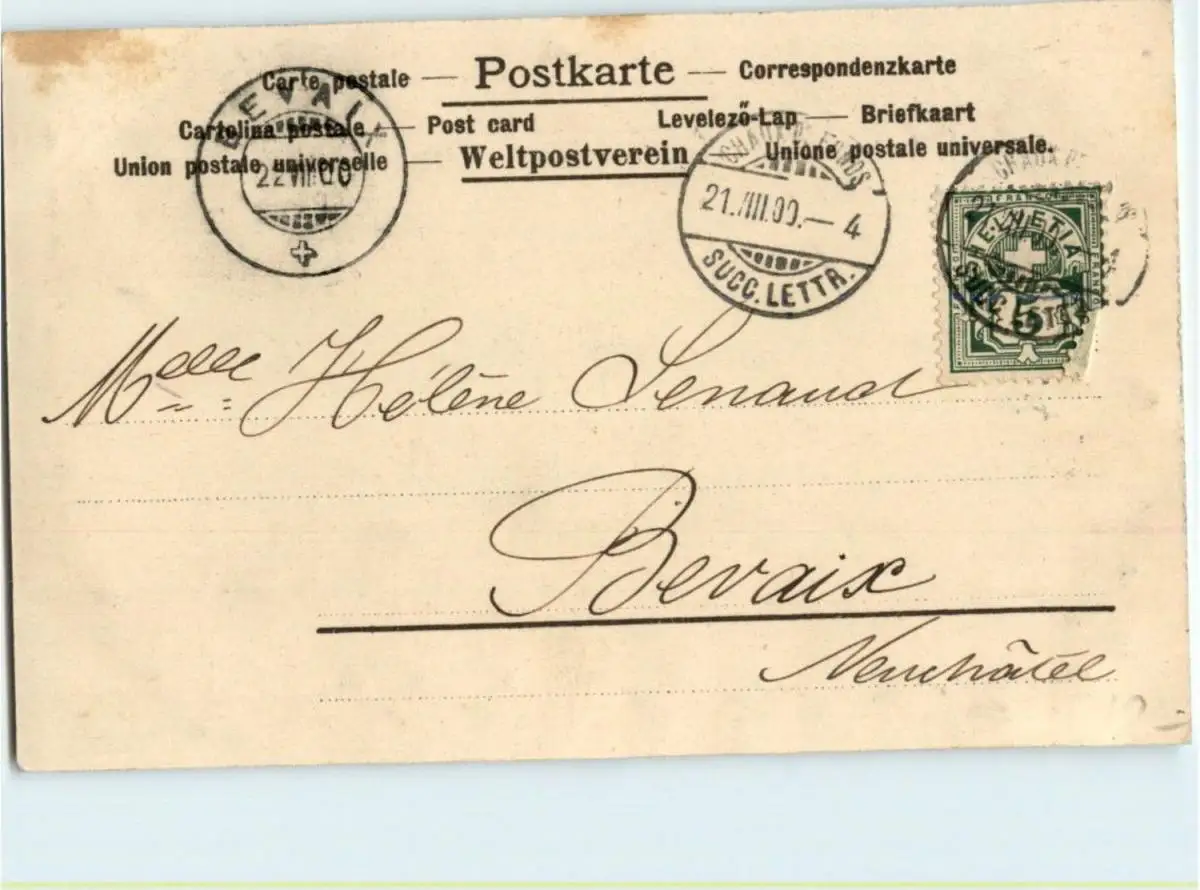 Carte postale — Postkarte — Correspondenzkarte
Cartolina postale — Post card Levelező-Lap — Briefkaart
Union postale universelle — Weltpostverein — Unione postale universale.
BEVAIX
22 VIII 00
CHAUX-DE-FONDS
21.VIII.00.— 4
SUCC. LETTR.
CHAUX
SUCC. LETTR.
FRANCO
HELVETIA
5
Melle Hélène Senaud
Bevaix
Neuchâtel